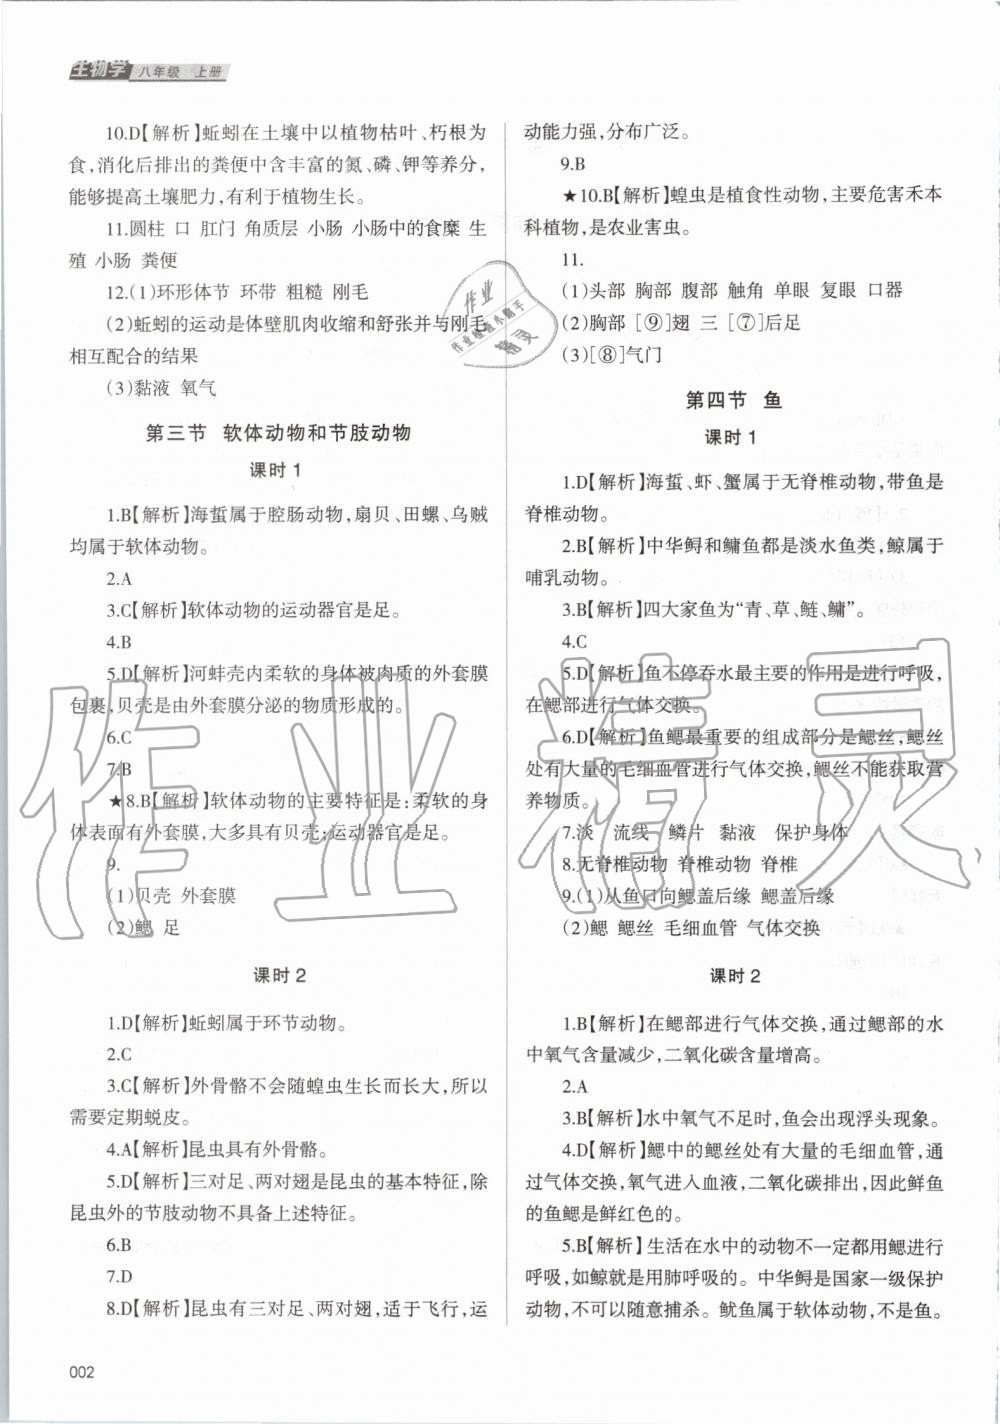 生物学 八年级 上册
10.D【解析】蚯蚓在土壤中以植物枯叶、朽根为
食,消化后排出的粪便中含丰富的氮、磷、钾等养分,
能够提高土壤肥力,有利于植物生长。
11.圆柱 口 肛门 角质层 小肠 小肠中的食糜 生
殖 小肠 粪便
12.(1)环形体节 环带 粗糙 刚毛
(2)蚯蚓的运动是体壁肌肉收缩和舒张并与刚毛
相互配合的结果
(3)黏液 氧气
第三节 软体动物和节肢动物
课时1
1.B【解析】海蜇属于腔肠动物,扇贝、田螺、乌贼
均属于软体动物。
2.A
3.C【解析】软体动物的运动器官是足。
4.B
5.D【解析】河蚌壳内柔软的身体被肉质的外套膜
包裹,贝壳是由外套膜分泌的物质形成的。
6.C
7.B
★8.B【解析】软体动物的主要特征是:柔软的身
体表面有外套膜,大多具有贝壳;运动器官是足。
9.
(1)贝壳 外套膜
(2)鳃 足
课时2
1.D【解析】蚯蚓属于环节动物。
2.C
3.C【解析】外骨骼不会随蝗虫生长而长大,所以
需要定期蜕皮。
4.A【解析】昆虫具有外骨骼。
5.D【解析】三对足、两对翅是昆虫的基本特征,除
昆虫外的节肢动物不具备上述特征。
6.B
7.D
8.D【解析】昆虫有三对足、两对翅,适于飞行,运
动能力强,分布广泛。
9.B
★10.B【解析】蝗虫是植食性动物,主要危害禾本
科植物,是农业害虫。
11.
(1)头部 胸部 腹部 触角 单眼 复眼 口器
(2)胸部 [⑨]翅 三 [⑦]后足
(3)[⑧]气门
第四节 鱼
课时1
1.D【解析】海蜇、虾、蟹属于无脊椎动物,带鱼是
脊椎动物。
2.B【解析】中华鲟和鳙鱼都是淡水鱼类,鲸属于
哺乳动物。
3.B【解析】四大家鱼为“青、草、鲢、鳙”。
4.C
5.D【解析】鱼不停吞水最主要的作用是进行呼吸,
在鳃部进行气体交换。
6.D【解析】鱼鳃最重要的组成部分是鳃丝,鳃丝
处有大量的毛细血管进行气体交换,鳃丝不能获取营
养物质。
7.淡 流线 鳞片 黏液 保护身体
8.无脊椎动物 脊椎动物 脊椎
9.(1)从鱼口向鳃盖后缘 鳃盖后缘
(2)鳃 鳃丝 毛细血管 气体交换
课时2
1.B【解析】在鳃部进行气体交换,通过鳃部的水
中氧气含量减少,二氧化碳含量增高。
2.A
3.B【解析】水中氧气不足时,鱼会出现浮头现象。
4.D【解析】鳃中的鳃丝处有大量的毛细血管,
通过气体交换,氧气进入血液,二氧化碳排出,因此鲜鱼
的鱼鳃是鲜红色的。
5.B【解析】生活在水中的动物不一定都用鳃进行
呼吸,如鲸就是用肺呼吸的。中华鲟是国家一级保护
动物,不可以随意捕杀。鱿鱼属于软体动物,不是鱼。
002
作业精灵
作业
精灵